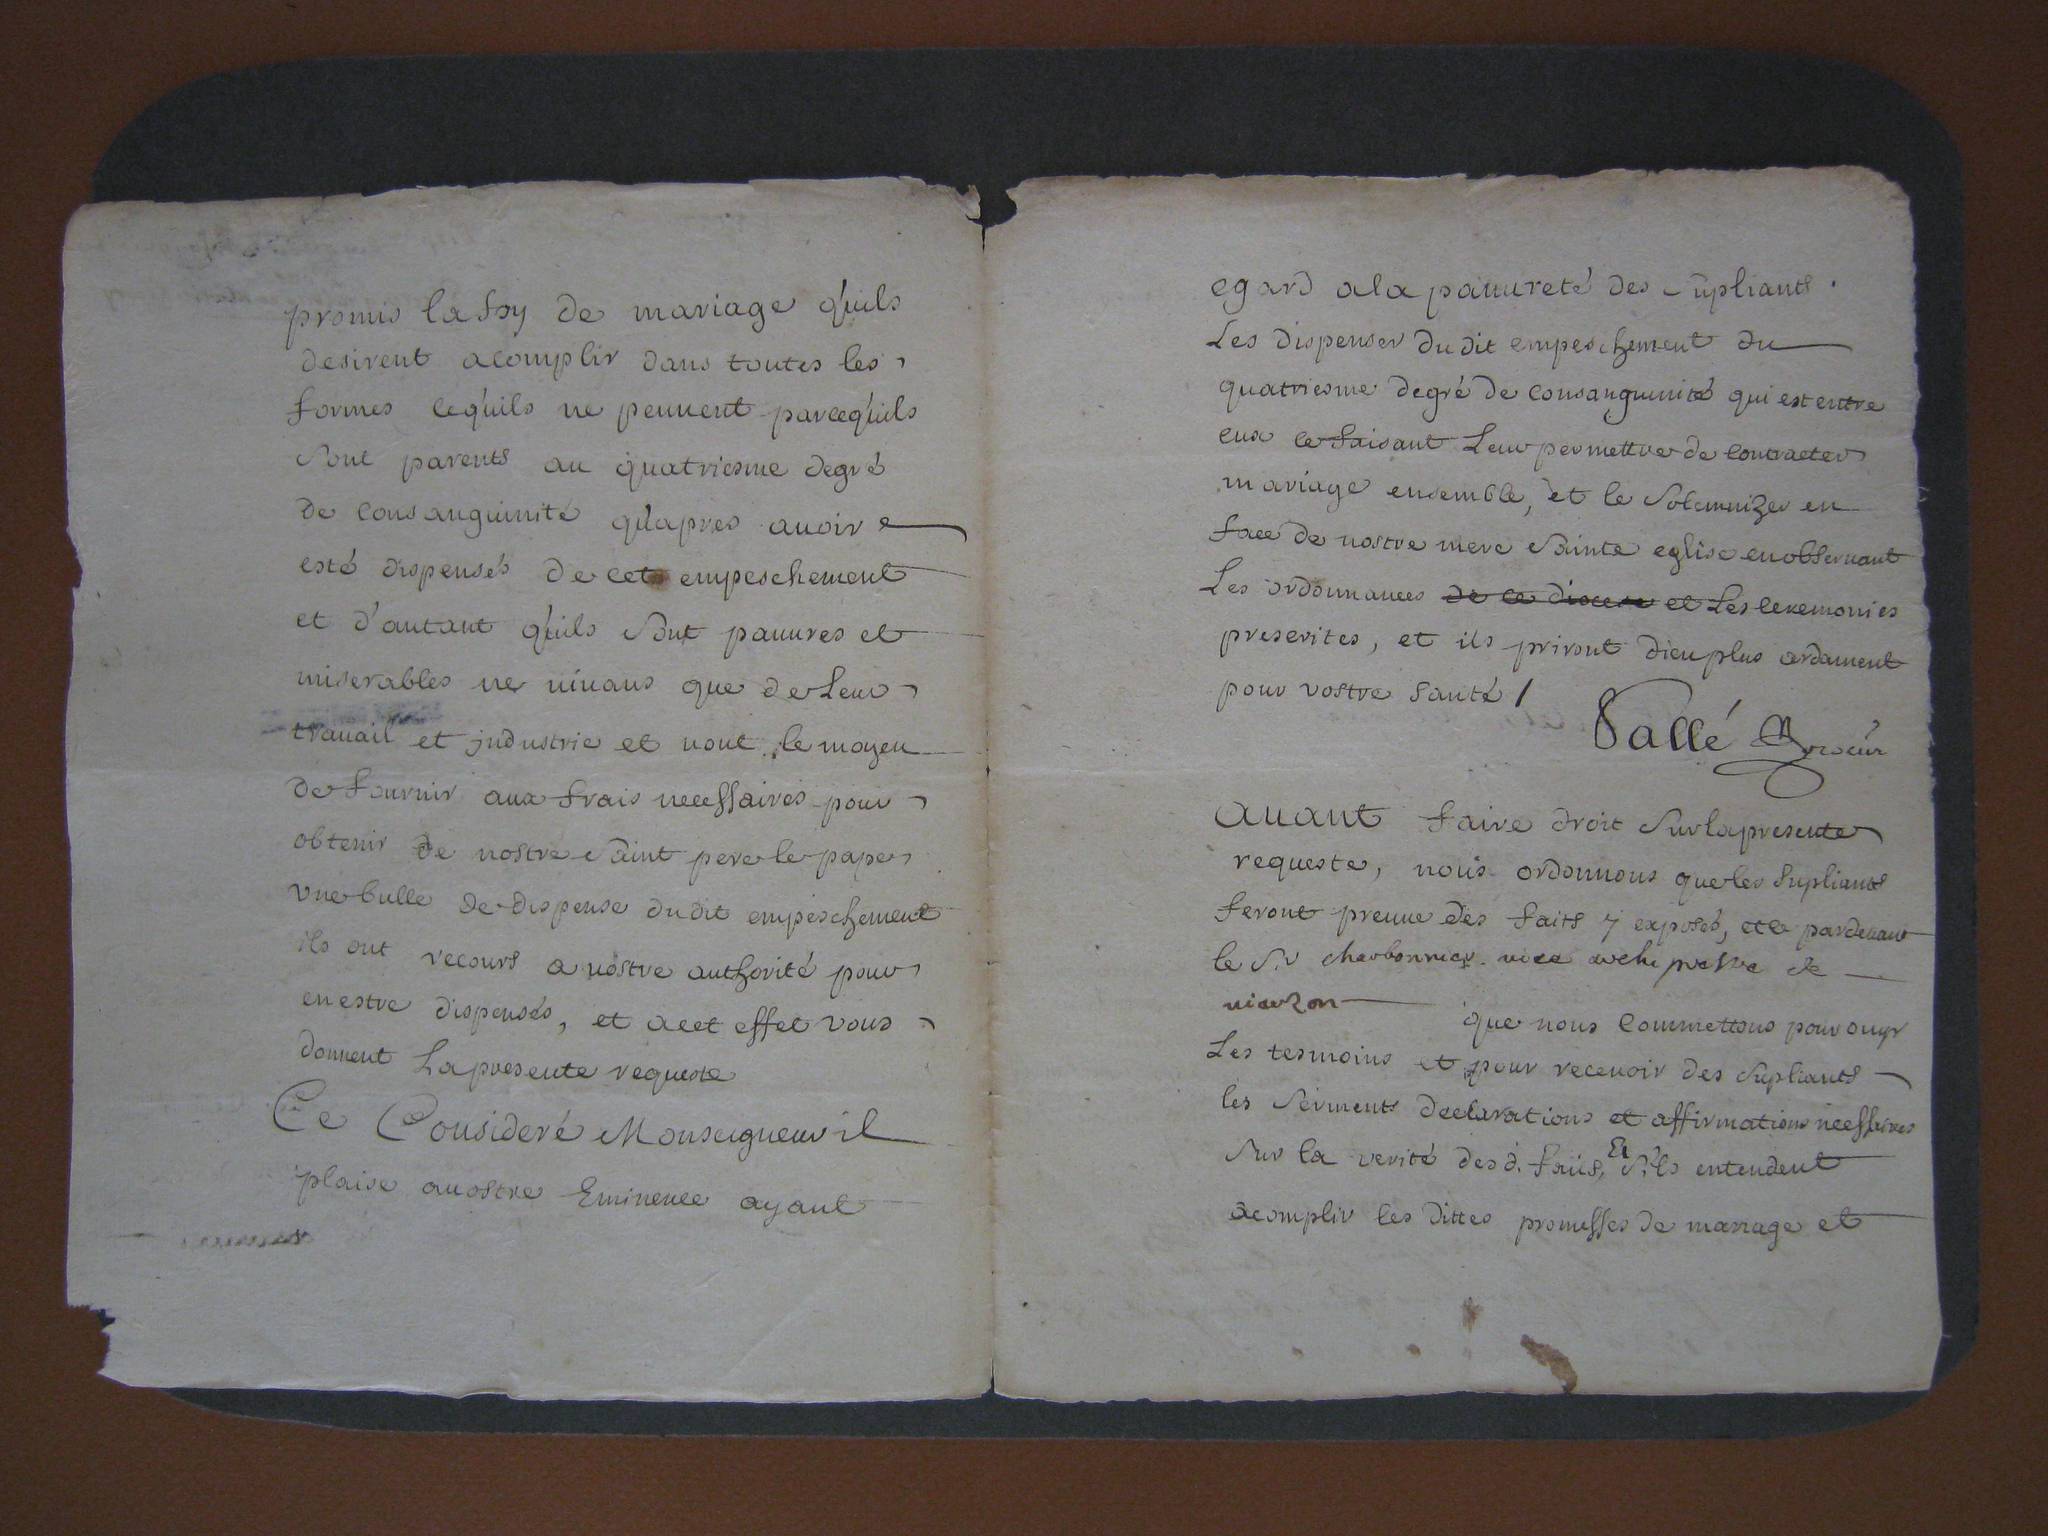 promis la foy de mariage qu'ils
desirent acomplir dans toutes les
formes cequ'ils ne peuuent parcequ'ils
sont parents au quatriesme degré
de consanguinité qu'apres auoir
esté dispensés de cet empeschement
et d'autant qu'ils sont pauures et
miserables ne viuans que de leur
trauail et industrie et nont le moyen
de fournir aux frais necessaires pour
obtenir de nostre saint pere le pape
vne bulle de dispense dudit empeschement
ils ont recours a vostre authorité pour
en estre dispensés, et acet effet vous
donnent La presente requeste
Ce Consideré Monseigneur il
plaise a vostre Eminence ayant
egard a la pauureté des supliants
Les dispenser dudit empeschement du
quatriesme degré de consanguinité qui est entre
eux ce faisant Leur permettre de contracter
mariage ensemble, et le solemnizer en
face de nostre mere sainte eglise en obseruant
Les ordonnances de ce diocese et Les ceremonies
prescrites, et ils priront dieu plus ardament
pour vostre santé /
Vallé procur
auant faire droit sur la presente
requeste, nous ordonnons que les supliants
feront preuue des faits y exposés, et ce pardeuant
le Sr charbonnier vice archiprestre de
vierzon que nous commettons pour ouyr
Les tesmoins et pour receuoir des supliants
les serments declarations et affirmations necessaires
sur la verité des d. faits, Et s'ils entendent
acomplir les dittes promesses de mariage et